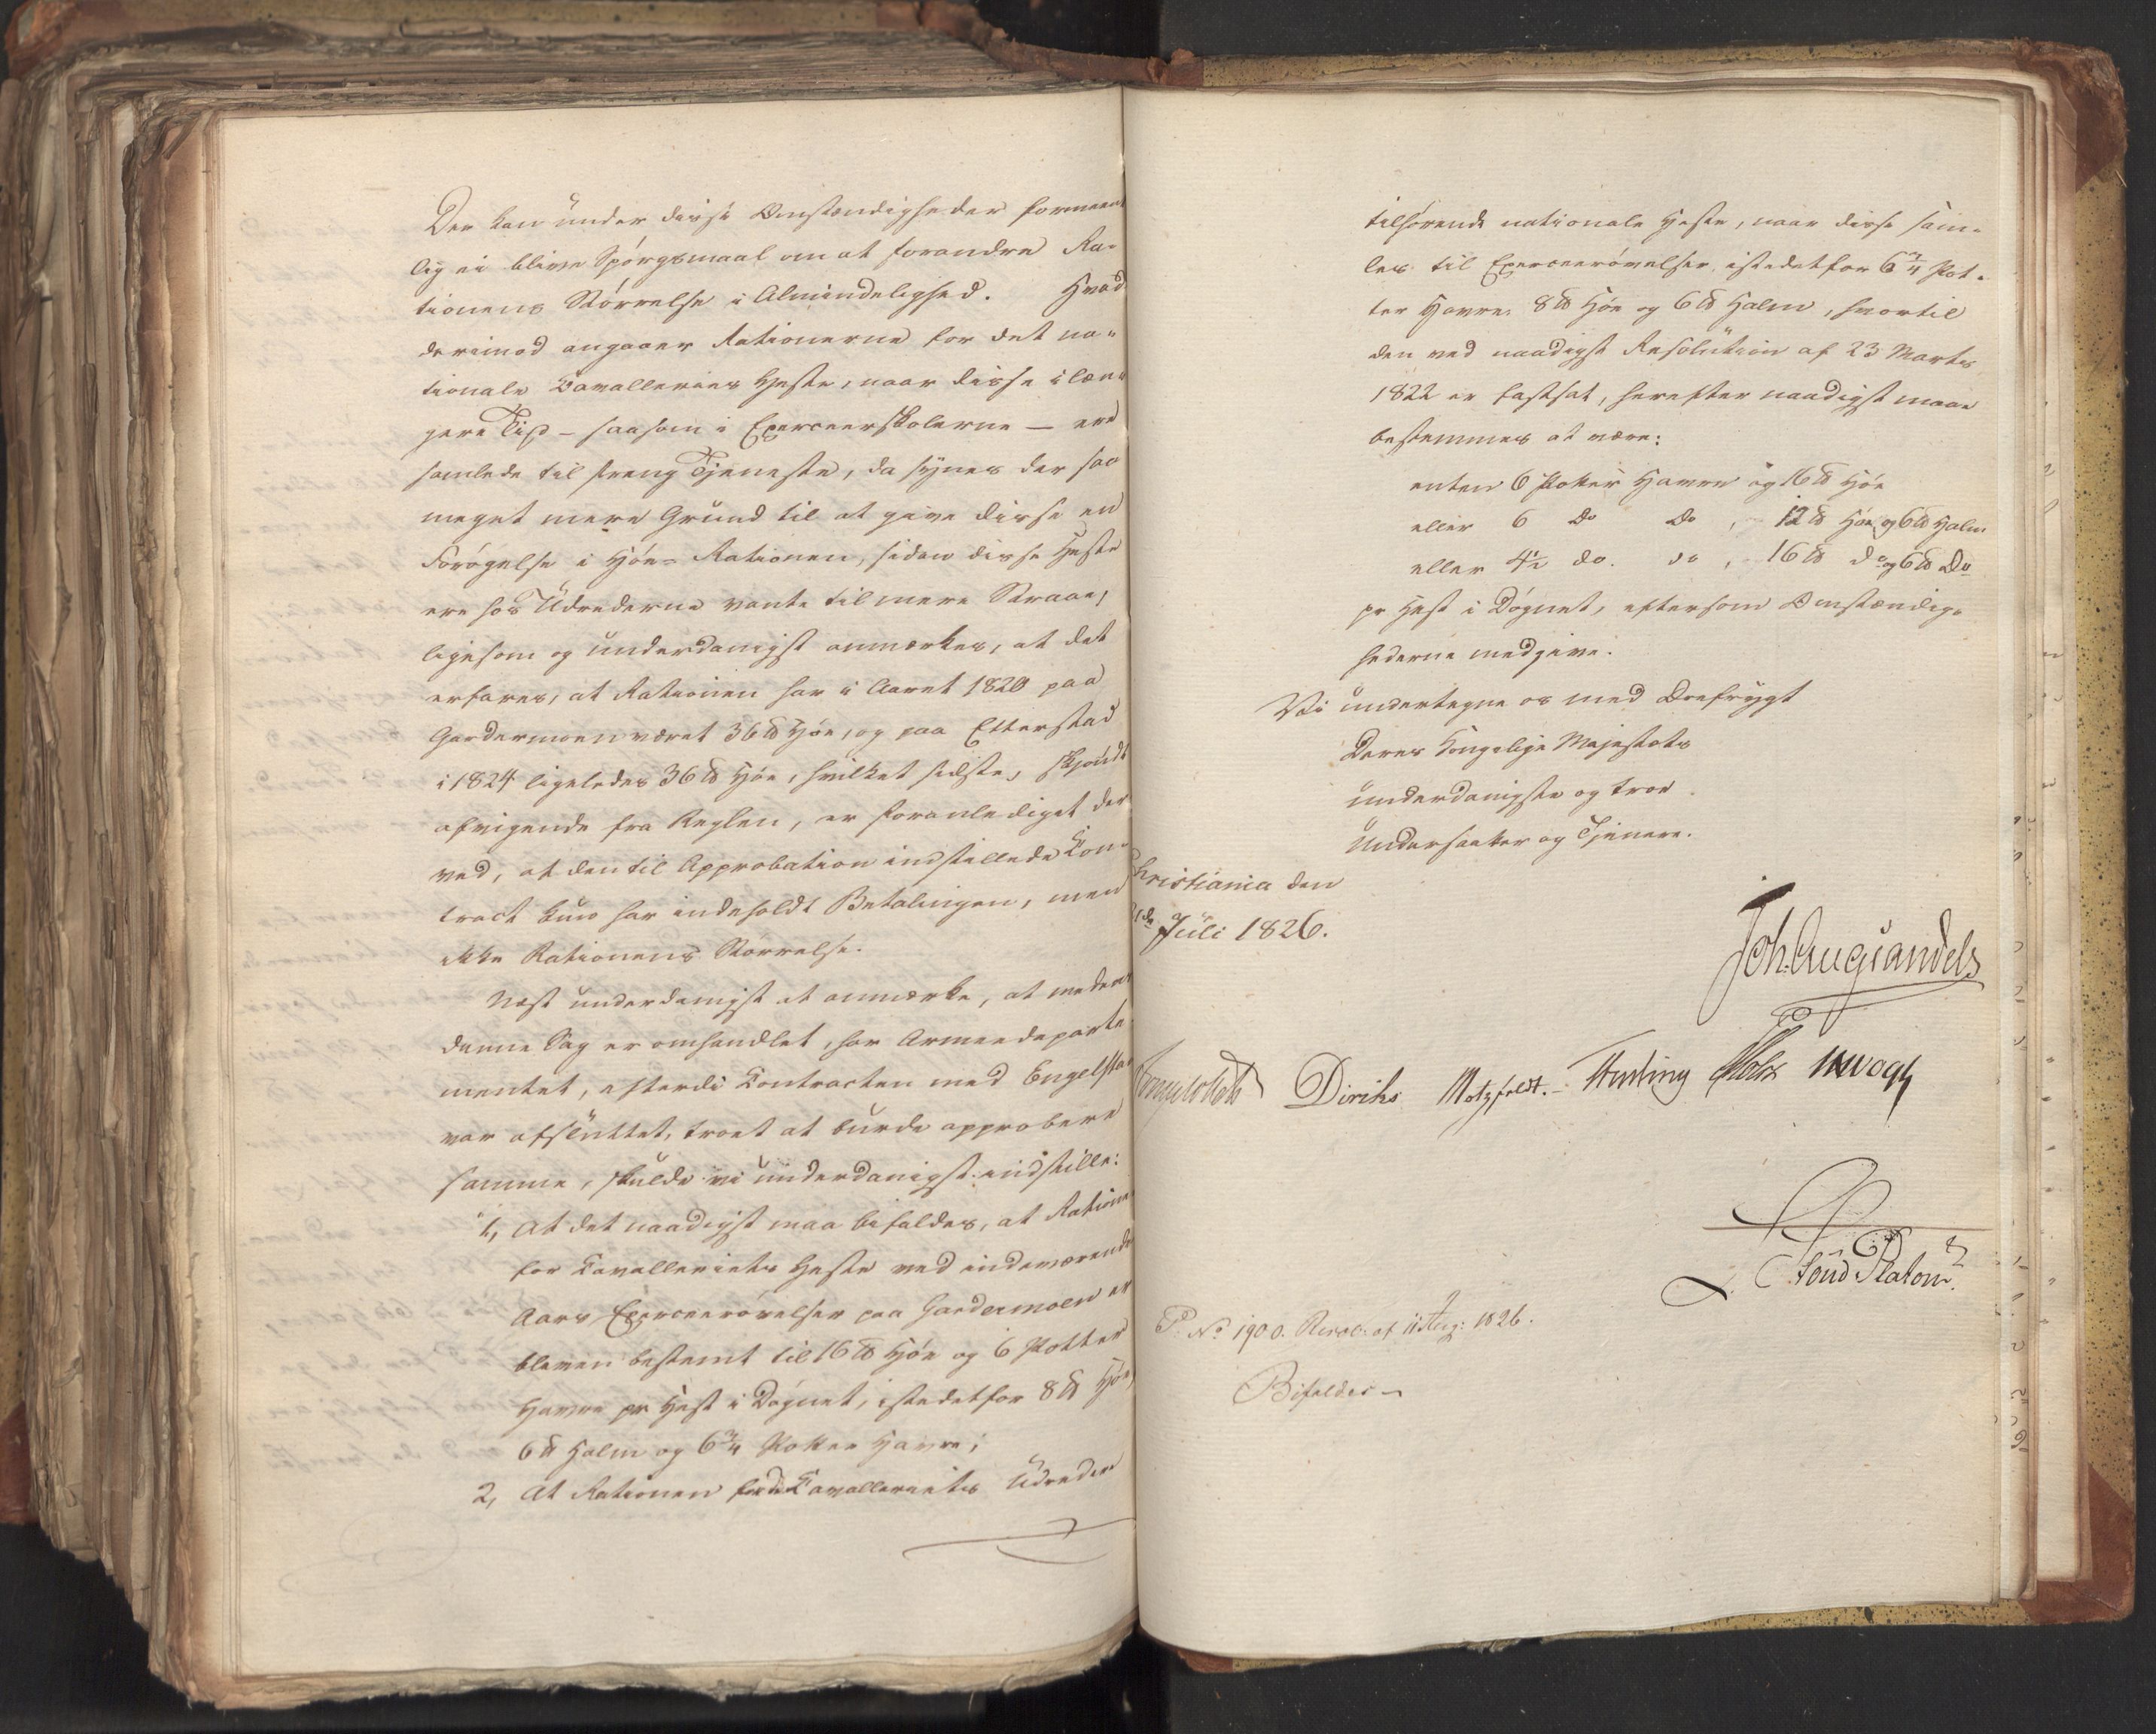 Der kan under disse Omstændigheder formeent
lig ei blive Spørgsmaal om at forandre Ra-
tionens Størrelse i Almindelighed. Hvad
derimod angaaer Rationerne for det na-
tionale Cavalleries Heste, naar disse i læn-
gere Tid – saasom i Exerceerskolerne – ere
samlede til streng Tjeneste, da synes der saa
meget mere Grund til at give disse en
Forøgelse i Høe-Rationen, siden disse Heste
ere hos Udrederne vante til mere Straae,
ligesom og underdanigst anmærkes, at det
erfares, at Rationen har i Aaret 1820 paa
Gardermoen været 36 ℔ Høe, og paa Etterstad
i 1824 ligeledes 36 ℔ Høe, hvilket sidste, skjøndt
afvigende fra Reglen, er foranlediget der
ved, at den til Approbation indstillede Con-
tract kun har indeholdt Betalingen, men
ikke Rationens Størrelse.
Næst underdanigst at anmærke, at medens
denne Sag er omhandlet, har Armeedeparte
mentet, efterdi Contracten med Engelstad
var afsluttet, troet at burde approbere
samme, skulde vi underdanigst indstille:
1, At det naadigst maa bifaldes, at Rationen
for Cavalleriets Heste ved indeværende
Aars Exerceerøvelser paa Gardermoen er
bleven bestemt til 16 ℔ Høe og 6 Potter
Havre pr Hest i Døgnet, istedetfor 8 ℔ Høe,
6 ℔ Halm og 6¾ Potter Havre;
2, At Rationen for de Cavalleriets Udredere
tilhørende nationale Heste, naar disse sam-
les til Exerceerøvelser, istedetfor 6¾ Pot-
ter Havre, 8 ℔ Høe og 6 ℔ Halm, hvortil
den ved naadigst Resolution af 23 Marts
1822 er fastsat, herefter naadigst maae
bestemmes at være:
enten 6 Potter Havre og 16 ℔ Høe
eller 6 Do Do, 12 ℔ Høe og 6 ℔ Halm
eller 4½ do. do, 16 ℔ do og 6 ℔ Do
pr Hest i Døgnet, eftersom Omstændig-
hederne medgive.
Vi undertegne os med Ærefrygt
Deres Kongelige Majestæts
underdanigste og troe
Undersaatter og Tjenere.
Christiania den
Juli 1826.
Joh. Aug Sandels
Diriks Motzfeldt. Fasting Holst Vogt
Platou
P. No 1900. Resol: af 11 Aug: 1826.
Bifaldes